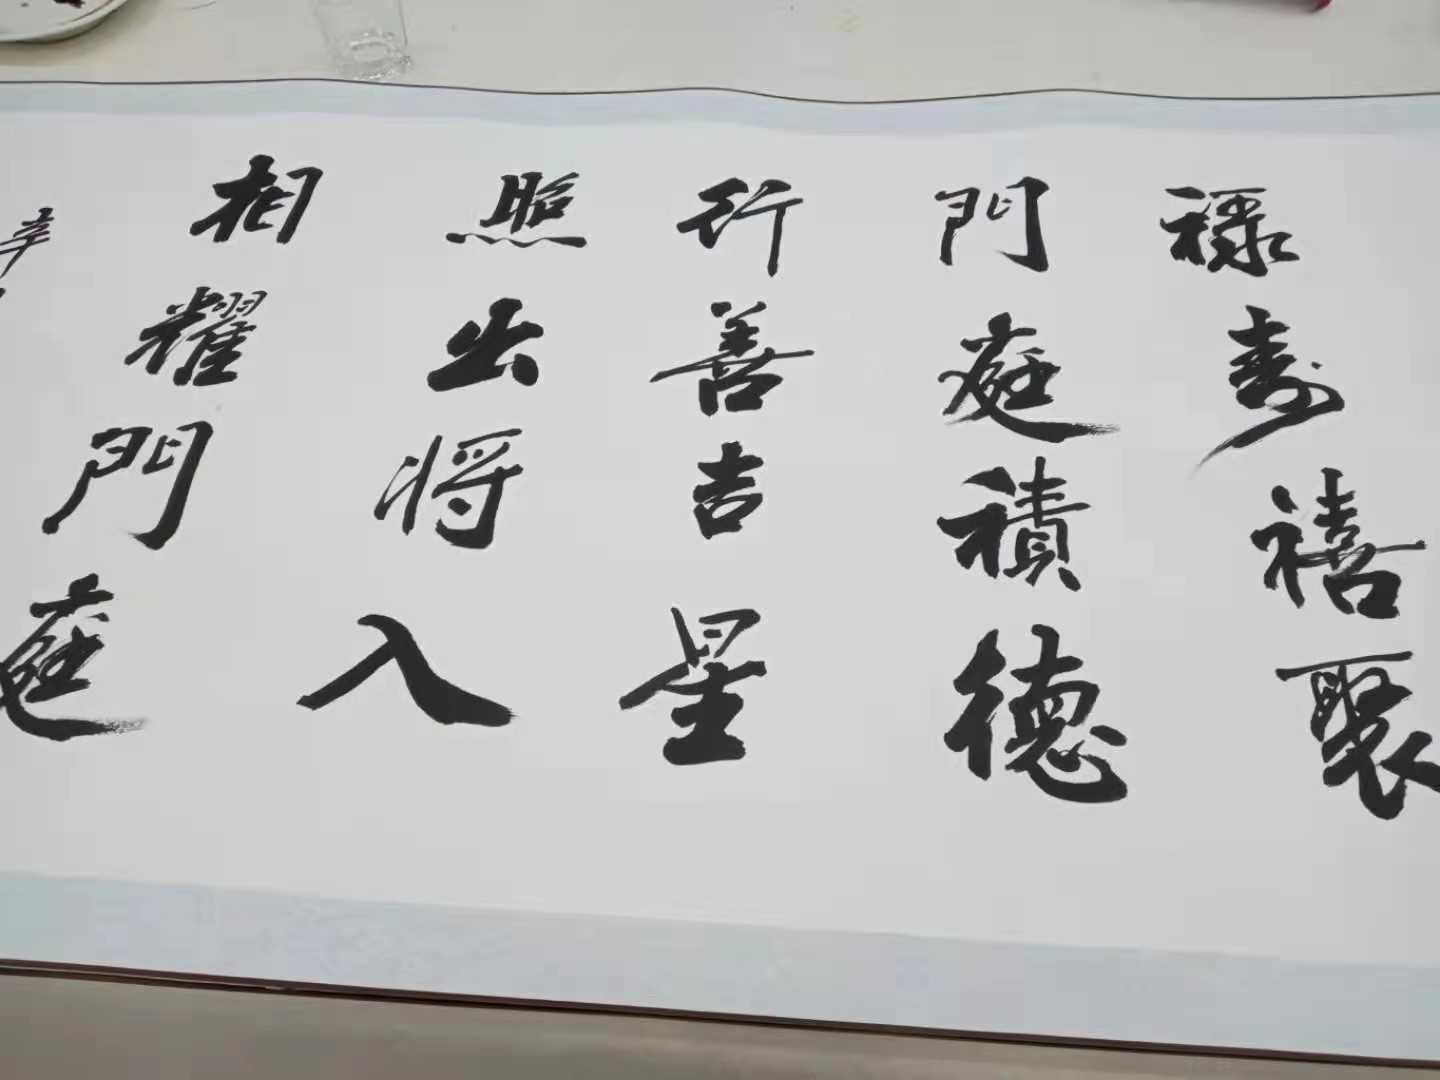 祿壽禧聚
門庭積德
行善吉星
照出将入
相耀門庭
辛